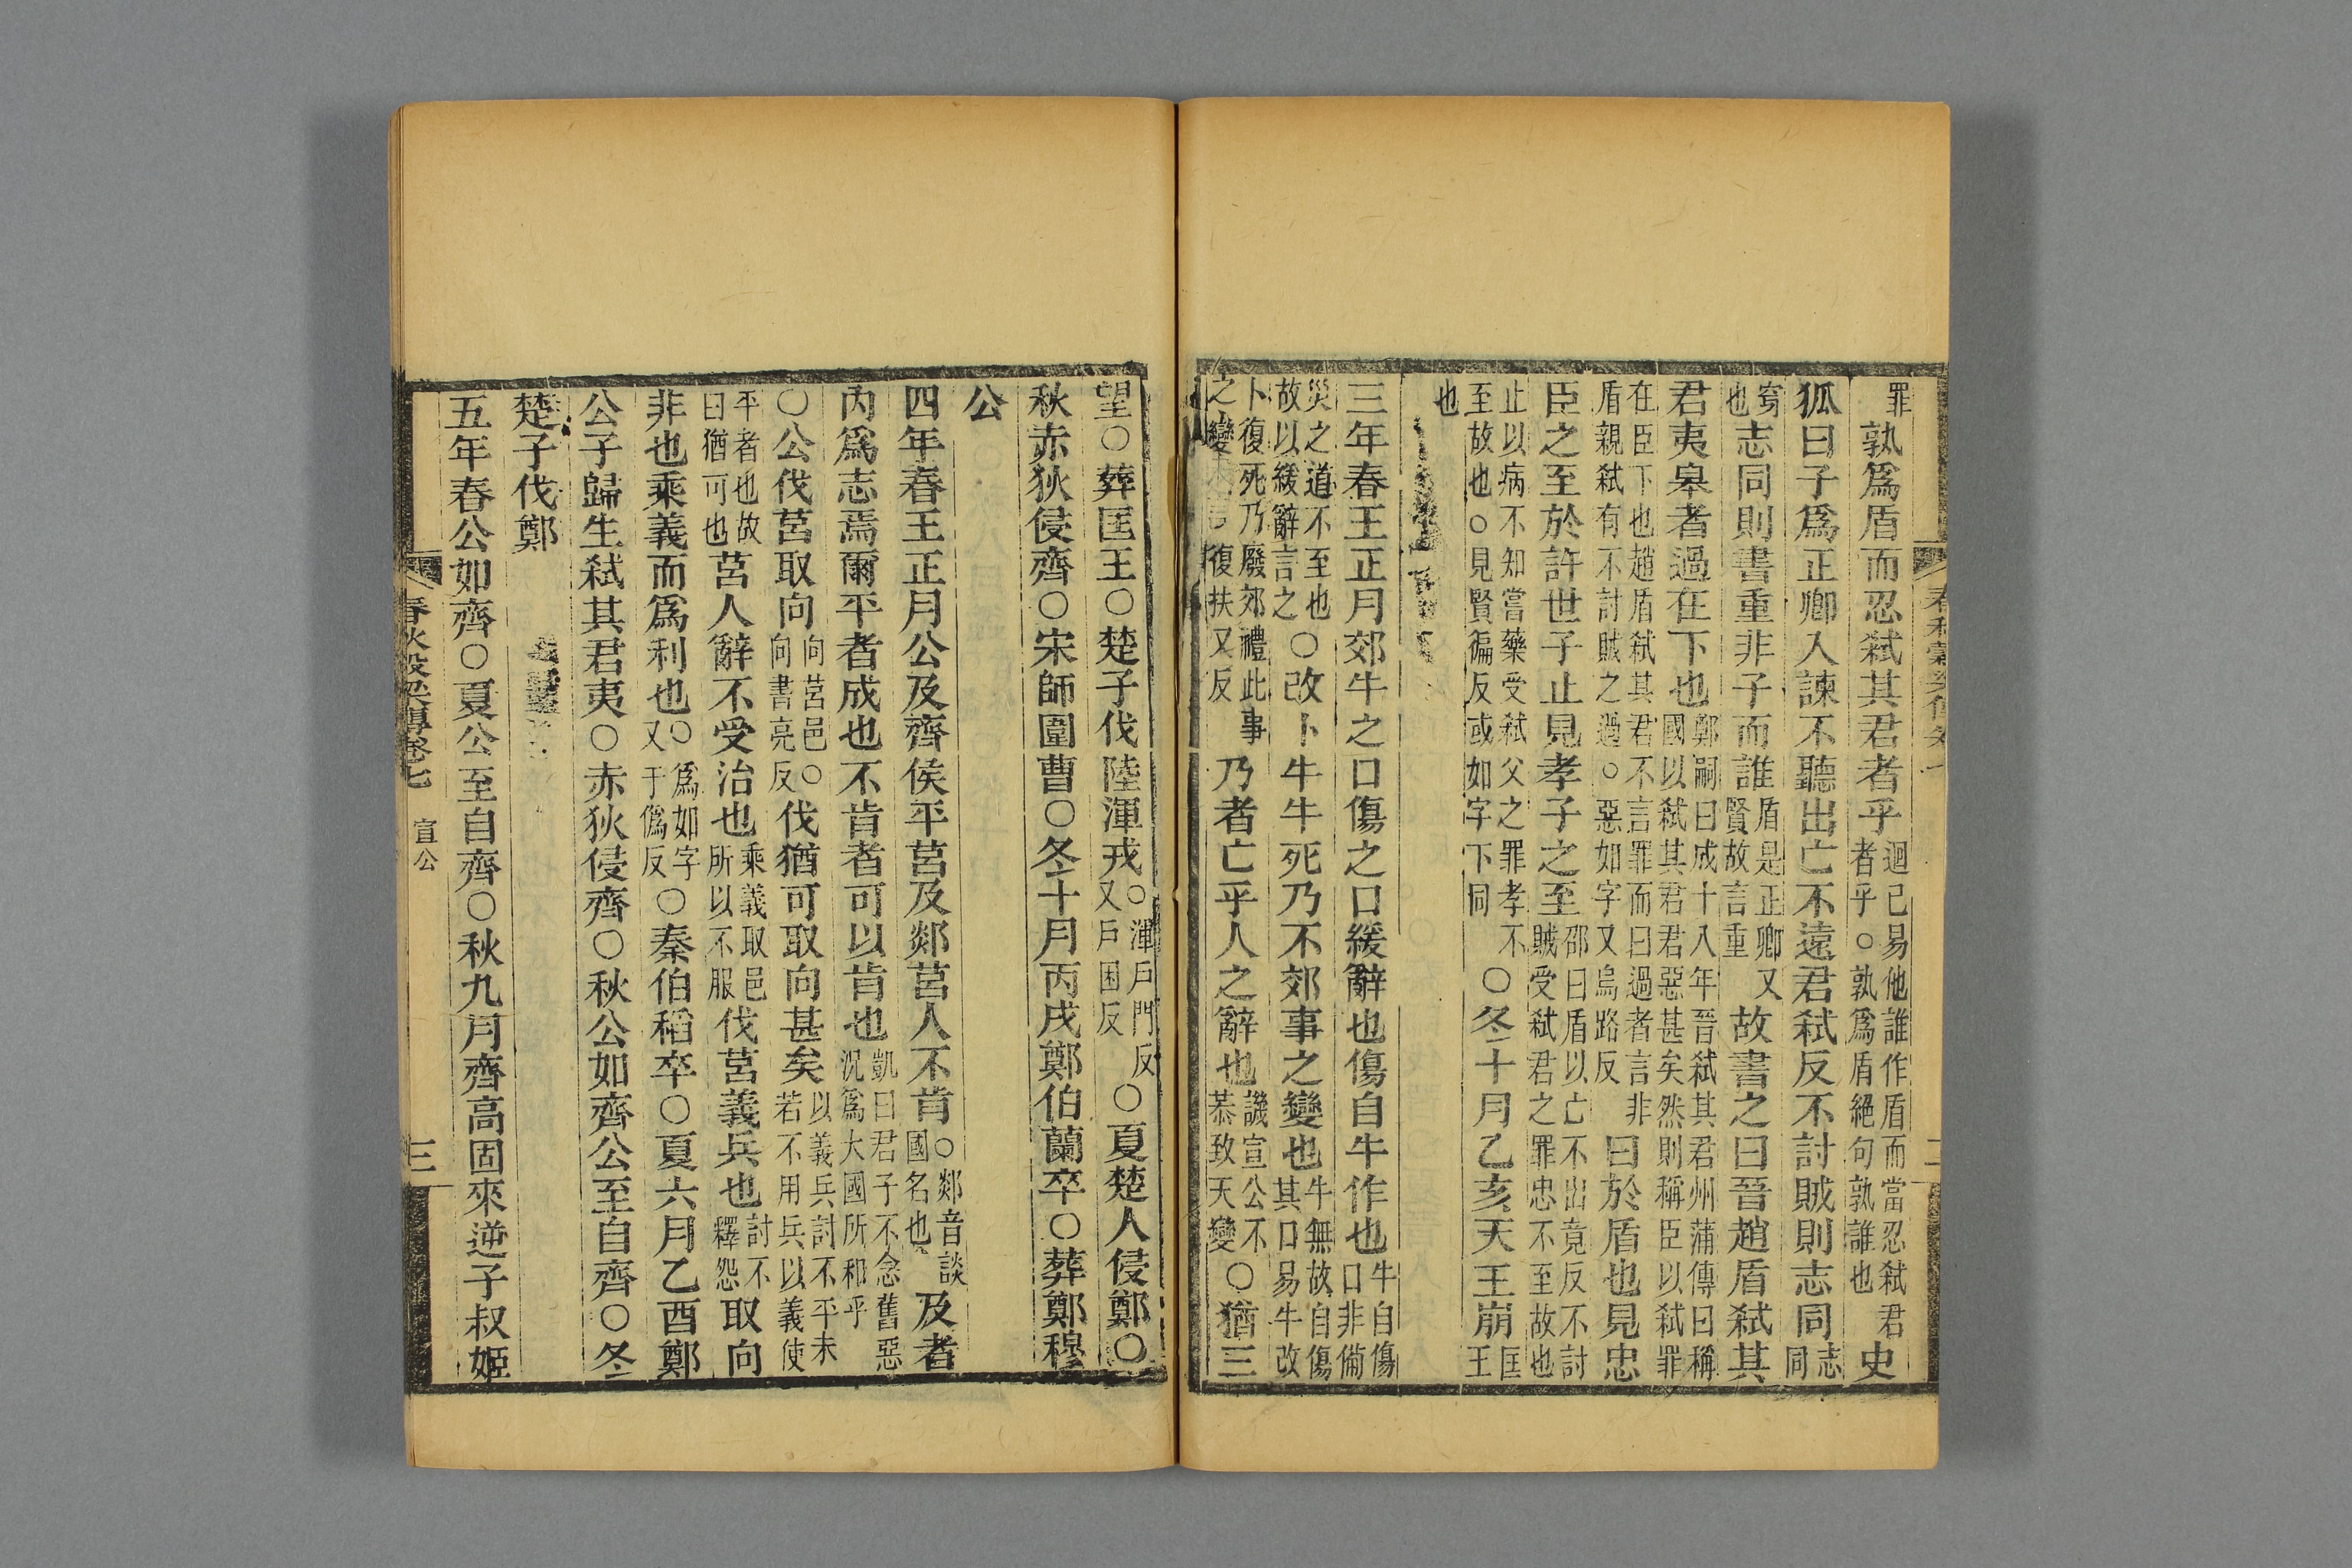 罪孰爲盾而忍弒其君者乎迴己易他誰作盾而當忍弒君者乎○孰爲盾絕句孰誰也史
狐曰子爲正卿入諫不聽出亡不遠君弒反不討賊則志同志同
穹也志同則書重非子而誰盾是正卿又賢故言重故書之曰晉趙盾弒其
君夷皋者過在下也鄭嗣曰成十八年晉弒其君州蒲傳曰稱國以弒其君君惡甚矣然則稱臣以弒罪
在臣下也趙盾弒其君不言罪而曰過者言非盾親弒有不討賊之過○惡如字又烏路反曰於盾也見忠
臣之至於許世子止見孝子之至邵曰盾以亡不出竟反不討賊受弒君之罪忠不至故也
止以病不知嘗藥受弒父之罪孝不至故也○見賢徧反或如字下同○冬十月乙亥天王崩匡王
也
三年春王正月郊牛之口傷之口緩辭也傷自牛作也牛自傷口非備
災之道不至也故以緩辭言之○改卜牛牛死乃不郊事之變也牛無故自傷其口易牛改
卜復死乃廢郊禮此事之變復扶又反乃者亡乎人之辭也譏宣公不恭致天變○猶三
望○葬匡王○楚子伐陸渾戎○渾戶門反又戶困反○夏楚人侵鄭○
秋赤狄侵齊○宋師圍曹○冬十月丙戌鄭伯蘭卒○葬鄭穆
公
四年春王正月公及齊侯平莒及郯莒人不肯○郯音談國名也及者
內爲志焉爾平者成也不肯者可以肯也凱曰君子不念舊惡況爲大國所和乎
○公伐莒取向向莒邑○向書亮反伐猶可取向甚矣以義兵討不平未若不用兵以義使
平者也故曰猶可也莒人辭不受治也乘義取邑所以不服伐莒義兵也討不釋怨取向
非也乘義而爲利也○爲如字又于僞反○秦伯稻卒○夏六月乙酉鄭
公子歸生弒其君夷○赤狄侵齊○秋公如齊公至自齊○冬
楚子伐鄭
五年春公如齊○夏公至自齊○秋九月齊高固來逆子叔姬
春秋穀梁傳卷七 宣公 三